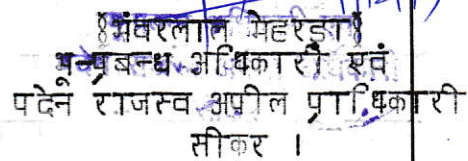 ﴾भंवरलाल मेहरड़ा﴿
भू-प्रबन्ध अधिकारी एवं
पदेन राजस्व अपील प्राधिकारी
सीकर ।